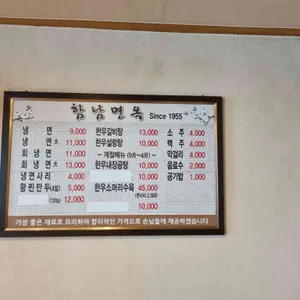 함남면옥 Since 1955
냉 면 9,000
냉 면 大 11,000
회 냉 면 11,000
회 냉 면 大 13,000
냉 면 사 리 4,000
왕 찐 만 두 (4알) 5,000
12,000
한우갈비탕 13,000
한우설렁탕 10,000
- 계절메뉴 (9月~4月) -
한우내장곰탕 10,000
10,000
한우소머리수육 45,000
10,000
소 주 4,000
맥 주 4,000
막걸리 4,000
음료수 2,000
공기밥 1,000
가장 좋은 재료로 요리하여 합리적인 가격으로 손님들께 제공하겠습니다